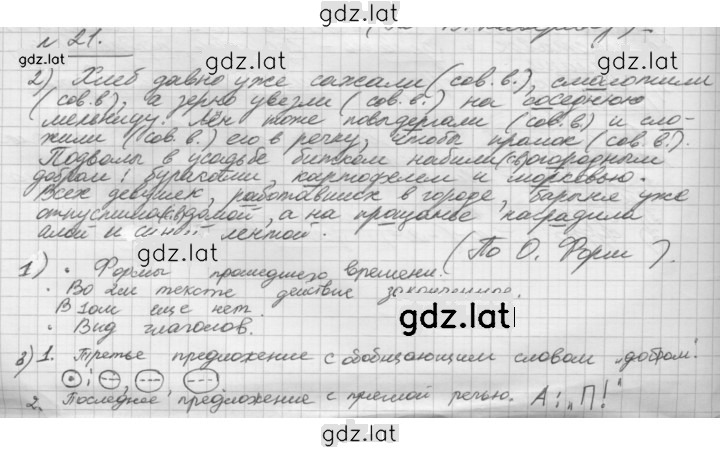 gdz.lat
№ 21.
gdz.lat
gdz.lat
2) Хлеб давно уже сжали (сов.в.), смолотили
(сов.в), а зерно увезли (сов.в.) на соседнюю
мельницу. Лён тоже повыдергали (сов.в) и сло-
жили (сов в.) его в речку, чтобы промок (сов.в.).
Подвалы в усадьбе битком набили(св)огородным
добром: бураками, картофелем и морковью.
Всех девушек, работавших в городе, барыня уже
отпустила домой, а на прощанье наградила
алой и синей лентой.
gdz.lat
(По О. Форш).
1) • Формы прошедшего времени.
• Во 2м тексте действие законченное.
В 1ом еще нет.
gdz.lat
• Вид глаголов.
3) 1. Третье предложение с обобщающим словом „добром".
2. Последнее предложение с прямой речью. А: „П!"
gdz.lat